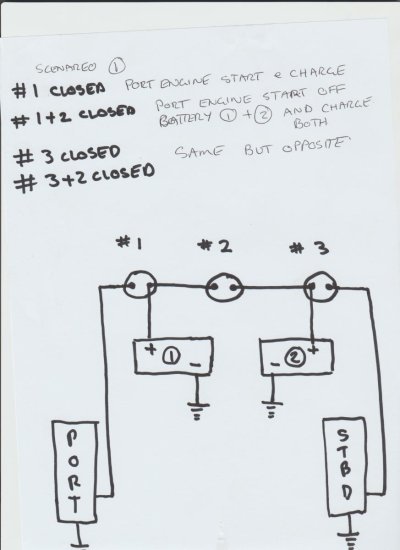 SCENAREO ①
#1 CLOSED PORT ENGINE START & CHARGE
#1+2 CLOSED PORT ENGINE START OFF
BATTERY ① + ② AND CHARGE
BOTH
#3 CLOSED SAME BUT OPPOSITE
#3+2 CLOSED
#1 #2 #3
+ ① - - ② +
PORT STBD